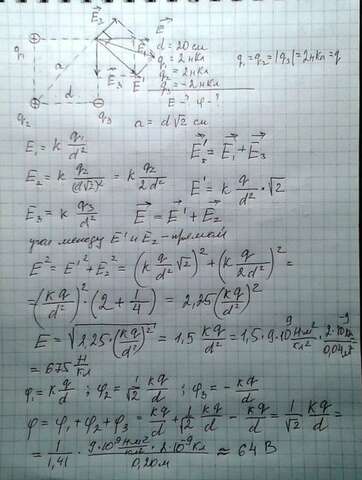 E⃗₂ E⃗
q₁ E⃗₁ d = 20 см
a q₁ = 2 нКл q₁ = q₂ = |q₃| = 2 нКл = q
E⃗₃ E⃗' q₂ = 2 нКл
d q₃ = −2 нКл
q₂ q₃ E − ? φ − ?
a = d√2 см
E₁ = k q₁/d² E⃗' = E⃗₁ + E⃗₃
E₂ = k q₂/(d√2)² = k q₂/2d² E' = k q/d² · √2
E₃ = k q₃/d² E⃗ = E⃗' + E⃗₂
угол между E' и E₂ - прямой
E² = E'² + E₂² = (k q/d² √2)² + (k q/2d²)² =
= (kq/d²)² · (2 + 1/4) = 2,25 (kq/d²)²
E = √(2,25 (kq/d²)²) = 1,5 kq/d² = 1,5 · 9·10⁹ Нм²/кл² · 2·10⁻⁹ Кл/0,04 м²
= 675 Н/Кл
φ₁ = k q/d ; φ₂ = 1/√2 kq/d ; φ₃ = − kq/d
φ = φ₁ + φ₂ + φ₃ = kq/d + 1/√2 kq/d − kq/d = 1/√2 kq/d =
= 1/1,41 · 9·10⁹ Нм²/Кл² · 2·10⁻⁹ Кл/0,20 м ≈ 64 В